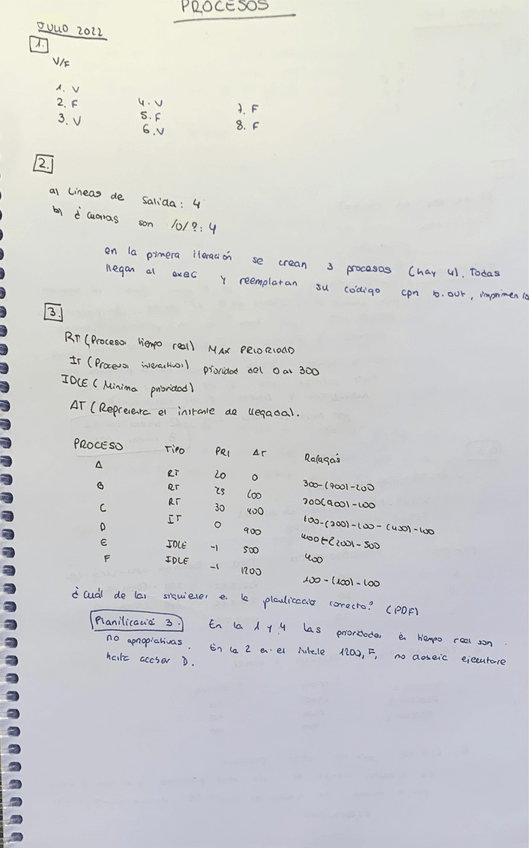 PROCESOS
JULIO 2022
1.
V/F
1. V
2. F
3. V
4. V
5. F
6. V
7. F
8. F
2.
a) Lineas de Salida: 4
b) ¿ cuantas son /0/?: 4
en la primera iteración se crean 3 procesos (hay 4). Todas
llegan al exec y reemplazan su código con b.out, imprimen
3.
RT (Proceso tiempo real) MAX PRIORIDAD
It (Proceso interactivo) prioridad del 0 al 300
IDLE (Minima prioridad)
AT (Representa el instante de llegada).
PROCESO TIPO PRI AT Ráfagas
A RT 20 0 300-(700)-200
B RT 25 600
C RT 30 400
D IT 0 900
E IDLE -1 500 400
F IDLE -1 1200 100-(100)-100
¿ cuál de las siguientes es la planificación correcta? (PDF)
Planificació 3: En la 1 y 4 las prioridades en tiempo real son
no apropiativas. En la 2 en el 1200, F, no
D.